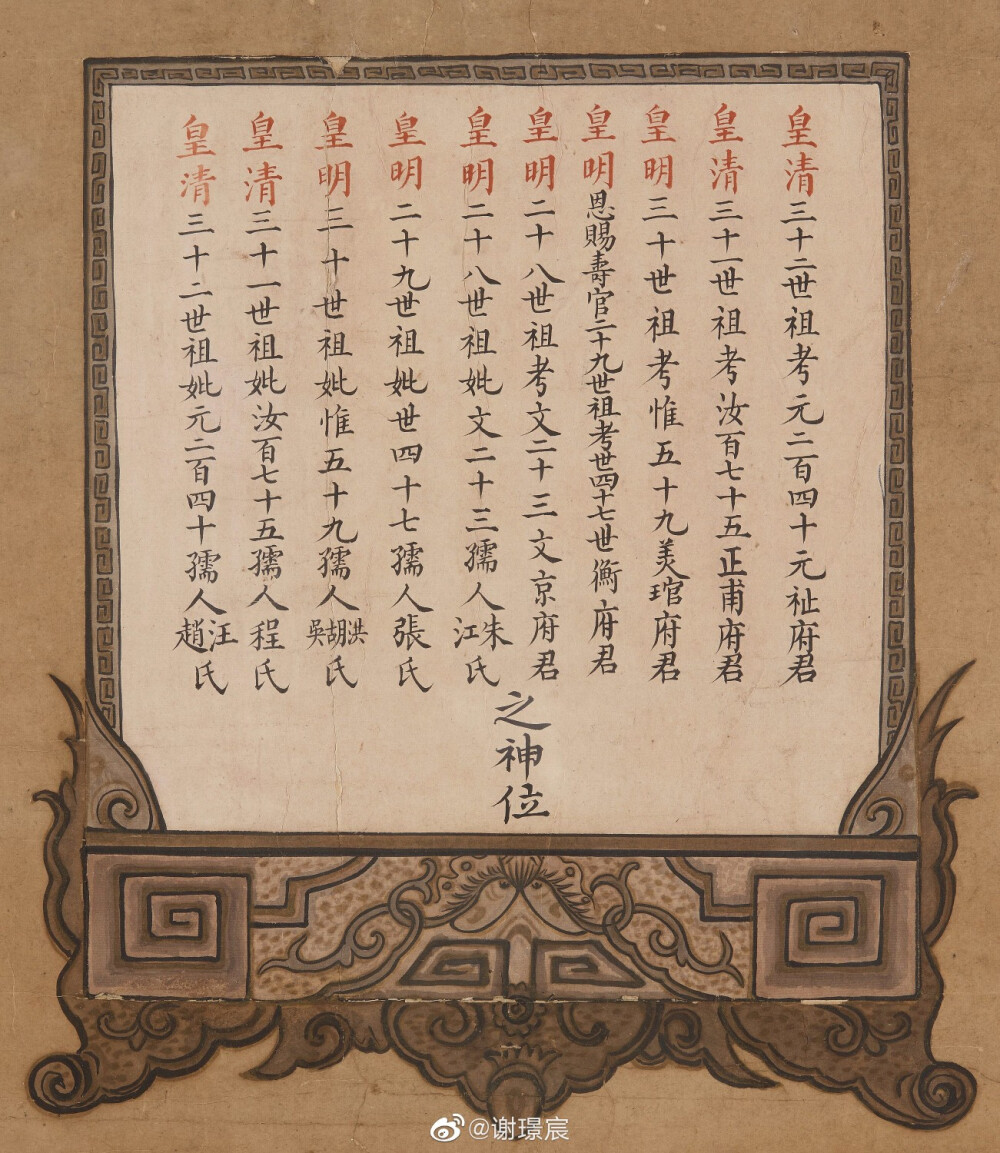 皇清三十二世祖考元二百四十元祉府君
皇清三十一世祖考汝百七十五正甫府君
皇明三十世祖考惟五十九美琯府君
皇明恩賜壽官二十九世祖考世四十七世衡府君
皇明二十八世祖考文二十三文京府君
皇明二十八世祖妣文二十三孺人朱江氏
皇明二十九世祖妣世四十七孺人張氏
皇明三十世祖妣惟五十九孺人洪胡吳氏
皇清三十一世祖妣汝百七十五孺人程氏
皇清三十二世祖妣元二百四十孺人汪趙氏
之神位
@谢璟宸